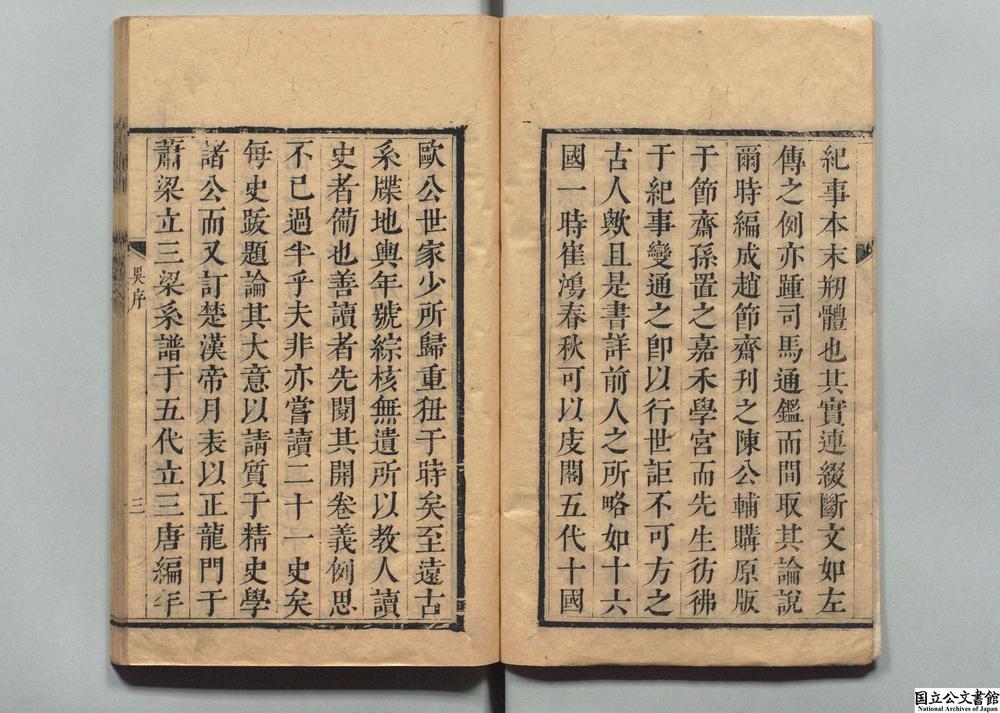 紀事本末刱體也其實連綴斷文如左
傳之例亦踵司馬通鑑而間取其論說
爾時編成趙節齋刊之陳公輔購原版
于節齋孫置之嘉禾學宮而先生彷彿
于紀事變通之卽以行世詎不可方之
古人歟且是書詳前人之所略如十六
國一時崔鴻春秋可以庋閣五代十國
歐公世家少所歸重狃于時矣至遠古
系牒地輿年號綜核無遺所以教人讀
史者備也善讀者先閱其開卷義例思
不已過半乎夫非亦嘗讀二十一史矣
每史跋題論其大意以請質于精史學
諸公而又訂楚漢帝月表以正龍門于
蕭梁立三梁系譜于五代立三唐編年
吳序
三
国立公文書館
National Archives of Japan